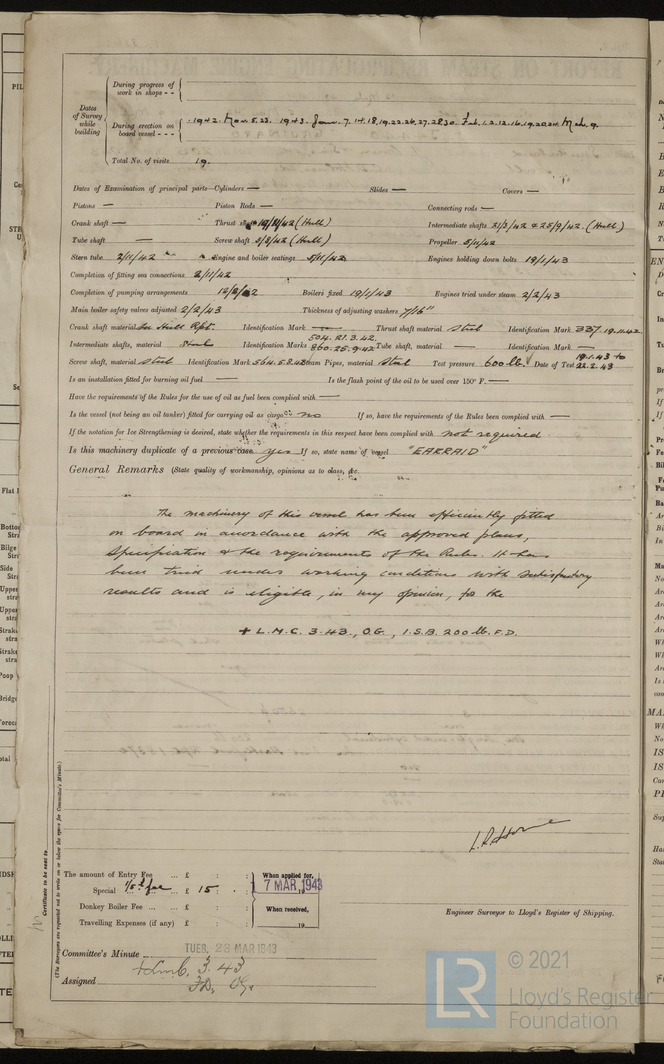 Dates of Survey while building
During progress of work in shops - -
During erection on board vessel - - - 1942. Nov. 5. 23. 1943. Jan. 7. 14. 18, 19. 22. 26. 27. 28. 30. Feb. 1. 2. 12. 16. 19. 20. 24. Mch. 9.
Total No. of visits 19.
Dates of Examination of principal parts—Cylinders — Slides — Covers —
Pistons — Piston Rods — Connecting rods —
Crank shaft — Thrust shaft (Hull) Intermediate shafts 21/3/42 & 25/9/42 (Hull)
Tube shaft — Screw shaft 5/8/42 (Hull) Propeller 5/11/42
Stern tube 2/11/42 Engine and boiler seatings 5/11/42 Engines holding down bolts 19/1/43
Completion of fitting sea connections 2/11/42
Completion of pumping arrangements Boilers fixed 19/1/43 Engines tried under steam 2/2/43
Main boiler safety valves adjusted 2/2/43 Thickness of adjusting washers 7/16"
Crank shaft material See Hull Rpt. Identification Mark — Thrust shaft material Steel Identification Mark 337. 19.11.42
Intermediate shafts, material Steel Identification Marks 504. 21.3.42. 860. 25.9.42 Tube shaft, material — Identification Mark —
Screw shaft, material Steel Identification Mark 564. 5.8.42 Steam Pipes, material Steel Test pressure 600 lb. Date of Test 19.1.43 to 22.2.43
Is an installation fitted for burning oil fuel — Is the flash point of the oil to be used over 150° F. —
Have the requirements of the Rules for the use of oil as fuel been complied with —
Is the vessel (not being an oil tanker) fitted for carrying oil as cargo no If so, have the requirements of the Rules been complied with —
If the notation for Ice Strengthening is desired, state whether the requirements in this respect have been complied with not required
Is this machinery duplicate of a previous case yes If so, state name of vessel "EARRAID"
General Remarks (State quality of workmanship, opinions as to class, &c.
The machinery of this vessel has been efficiently fitted
on board in accordance with the approved plans,
Specification & the requirements of the Rules. It has
been tried under working conditions with satisfactory
results and is eligible, in my opinion, for the
+ L.M.C. 3.43., O.G., 1.S.B. 200 lb. F.D.
The amount of Entry Fee ... £ : : When applied for,
Special 1/5th fee £ 15 : : 17 MAR 1943
Donkey Boiler Fee ... ... £ : : When received,
Travelling Expenses (if any) £ : : 19
Engineer Surveyor to Lloyd's Register of Shipping.
Committee's Minute TUES. 23 MAR 1943
Assigned + LMC. 3.43
FD. OG.
Certificate to be sent to
(The Surveyors are requested not to write on or below the space for Committee's Minute.)
© 2021
LR
Lloyd's Register
Foundation